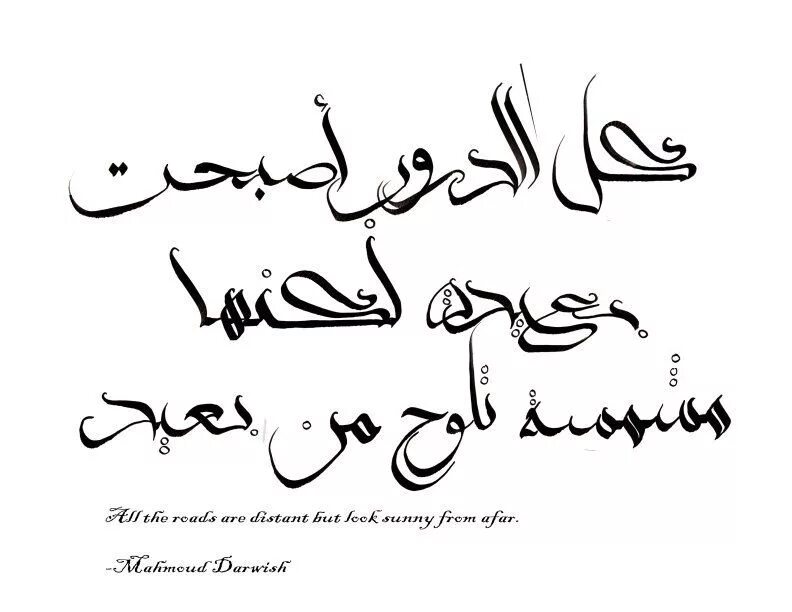 كل الدروب أصبحت
بعيدة لكنها
مشمسة تلوح من بعيد
All the roads are distant but look sunny from afar.
-Mahmoud Darwish